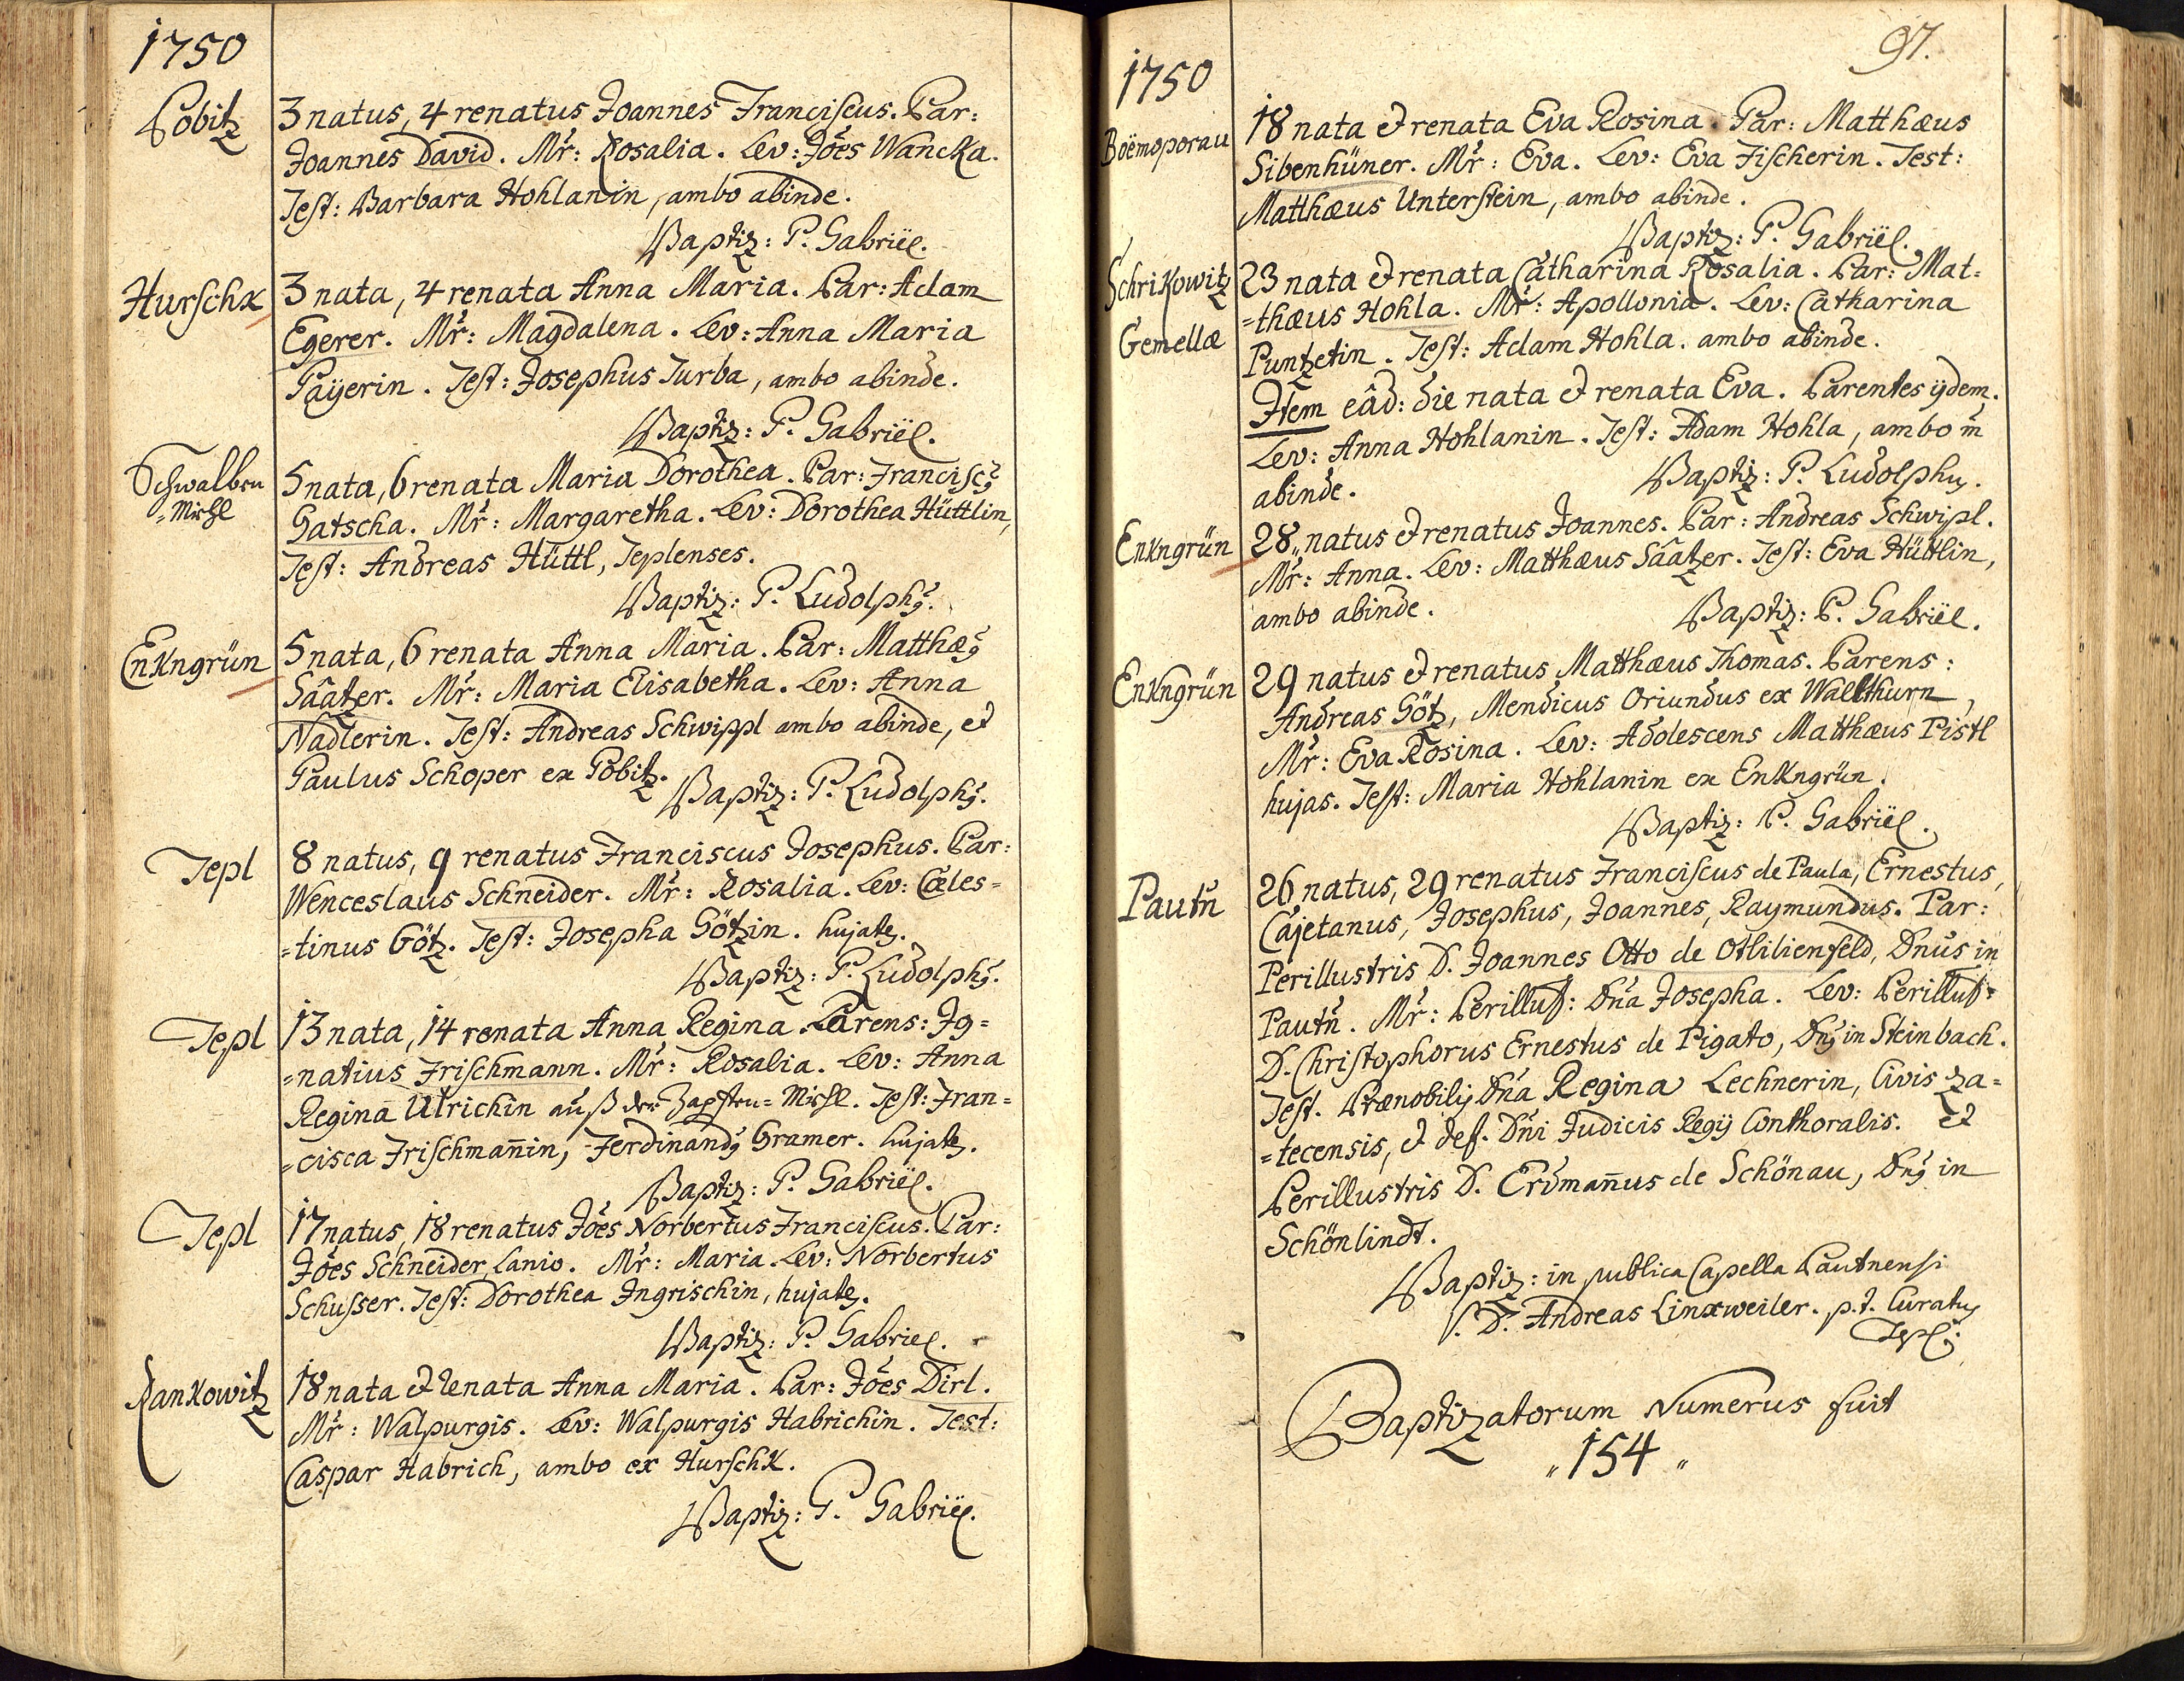 1750
Pobitz
3 natus, 4 renatus Joannes Franciscus. Par:
Joannes David. Mr̃: Rosalia. Lev: Jões Wancka.
Test: Barbara Hohlanin, ambo abinde.
Baptiz: P. Gabriël.
Hurschk
3 nata, 4 renata Anna Maria. Par: Adam
Egerer. Mr̃: Magdalena. Lev: Anna Maria
Paÿerin. Test: Josephus Turba, ambo abinde.
Baptiz: P. Gabriël.
Schwalben
=Mühl
5 nata, 6 renata Maria Dorothea. Par: Franciscꝰ
Gatscha. Mr̃: Margaretha. Lev: Dorothea Hüttlin,
Test: Andreas Hüttl, Teplenses.
Baptiz: P. Ludolphꝰ.
Enkngrün
5 nata, 6 renata Anna Maria. Par: Matthæꝰ
Sâatzer. Mr̃: Maria Elisabetha. Lev: Anna
Nadlerin. Test: Andreas Schwippl ambo abinde, et
Paulus Schoper ex Pobitz.
Baptiz: P. Ludolphꝰ.
Tepl
8 natus, 9 renatus Franciscus Josephus. Par:
Wenceslaus Schneider. Mr̃: Rosalia. Lev: Cæles=
=tinus Götz. Test: Josepha Götzin. hujates.
Baptiz: P. Ludolphꝰ.
Tepl
13 nata, 14 renata Anna Regina. Parens: Ig=
=natius Frischmann. Mr̃: Rosalia. Lev: Anna
Regina Ulrichin auß der Zapften=Mühl. Test: Fran=
=cisca Frischman̄in, Ferdinandꝰ Gramer. hujates.
Baptiz: P. Gabriël.
Tepl
17 natus, 18 renatus Jões Norbertus Franciscus. Par:
Jões Schneider, Lanio. Mr̃: Maria. Lev: Norbertus
Schusser. Test: Dorothea Ingrischin, hujates.
Baptiz: P. Gabriel.
Rankowitz
18 nata et renata Anna Maria. Par: Jões Dirl.
Mr̃: Walpurgis. Lev: Walpurgis Habrichin. Test:
Caspar Habrich, ambo ex Hurschk.
Baptiz: P. Gabriël.
97.
1750
Boëmoporau
18 nata et renata Eva Rosina. Par: Matthæus
Sibenhüner. Mr̃: Eva. Lev: Eva Fischerin. Test:
Matthæus Unterstein, ambo abinde.
Baptiz: P. Gabriël.
Schrikowitz
Gemellæ
23 nata et renata Catharina Rosalia. Par: Mat=
=thæus Hohla. Mr̃: Apollonia. Lev: Catharina
Puntzetin. Test: Adam Hohla. ambo abinde.
Item eâd: die nata et renata Eva. Parentes ÿdem.
Lev: Anna Hohlanin. Test: Adam Hohla, ambo m̃
abinde.
Baptiz: P. Ludolphꝰ.
Enkngrün
28 natus et renatus Joannes. Par: Andreas Schwipl.
Mr̃: Anna. Lev: Matthæus Sâatzer. Test: Eva Hüttlin,
ambo abinde.
Baptiz: P. Gabriël.
Enkngrün
29 natus et renatus Matthæus Thomas. Parens:
Andreas Götz, Mendicus Oriundus ex Wallthurn,
Mr̃: Eva Rosina. Lev: Adolescens Matthæus Pistl
hujas. Test: Maria Hohlanin ex Enkngrün.
Baptiz: P. Gabriël.
Pautñ
26 natus, 29 renatus Franciscus de Paula, Ernestus,
Cajetanus, Josephus, Joannes, Raymundus. Par:
Perillustris D. Joannes Otto de Ottilienfeld, Dñus in
Pautñ. Mr̃: Perillust: Dña Josepha. Lev: Perillust:
D. Christophorus Ernestus de Pigato, Dñꝰ in Steinbach.
Test. Prænobilis Dña Regina Lechnerin, Civis Za=
=tecensis, et def. Dñi Judicis Regÿ Conthoralis. et
Perillustris D. Erdman̄us de Schönau, Dñꝰ in
Schönlindt.
Baptiz: in publica Capella Pautnensi
P. D. Andreas Linxweiler. p.t. Curatꝰ
Tepl:
Baptizatorum Numerus fuit
„154„